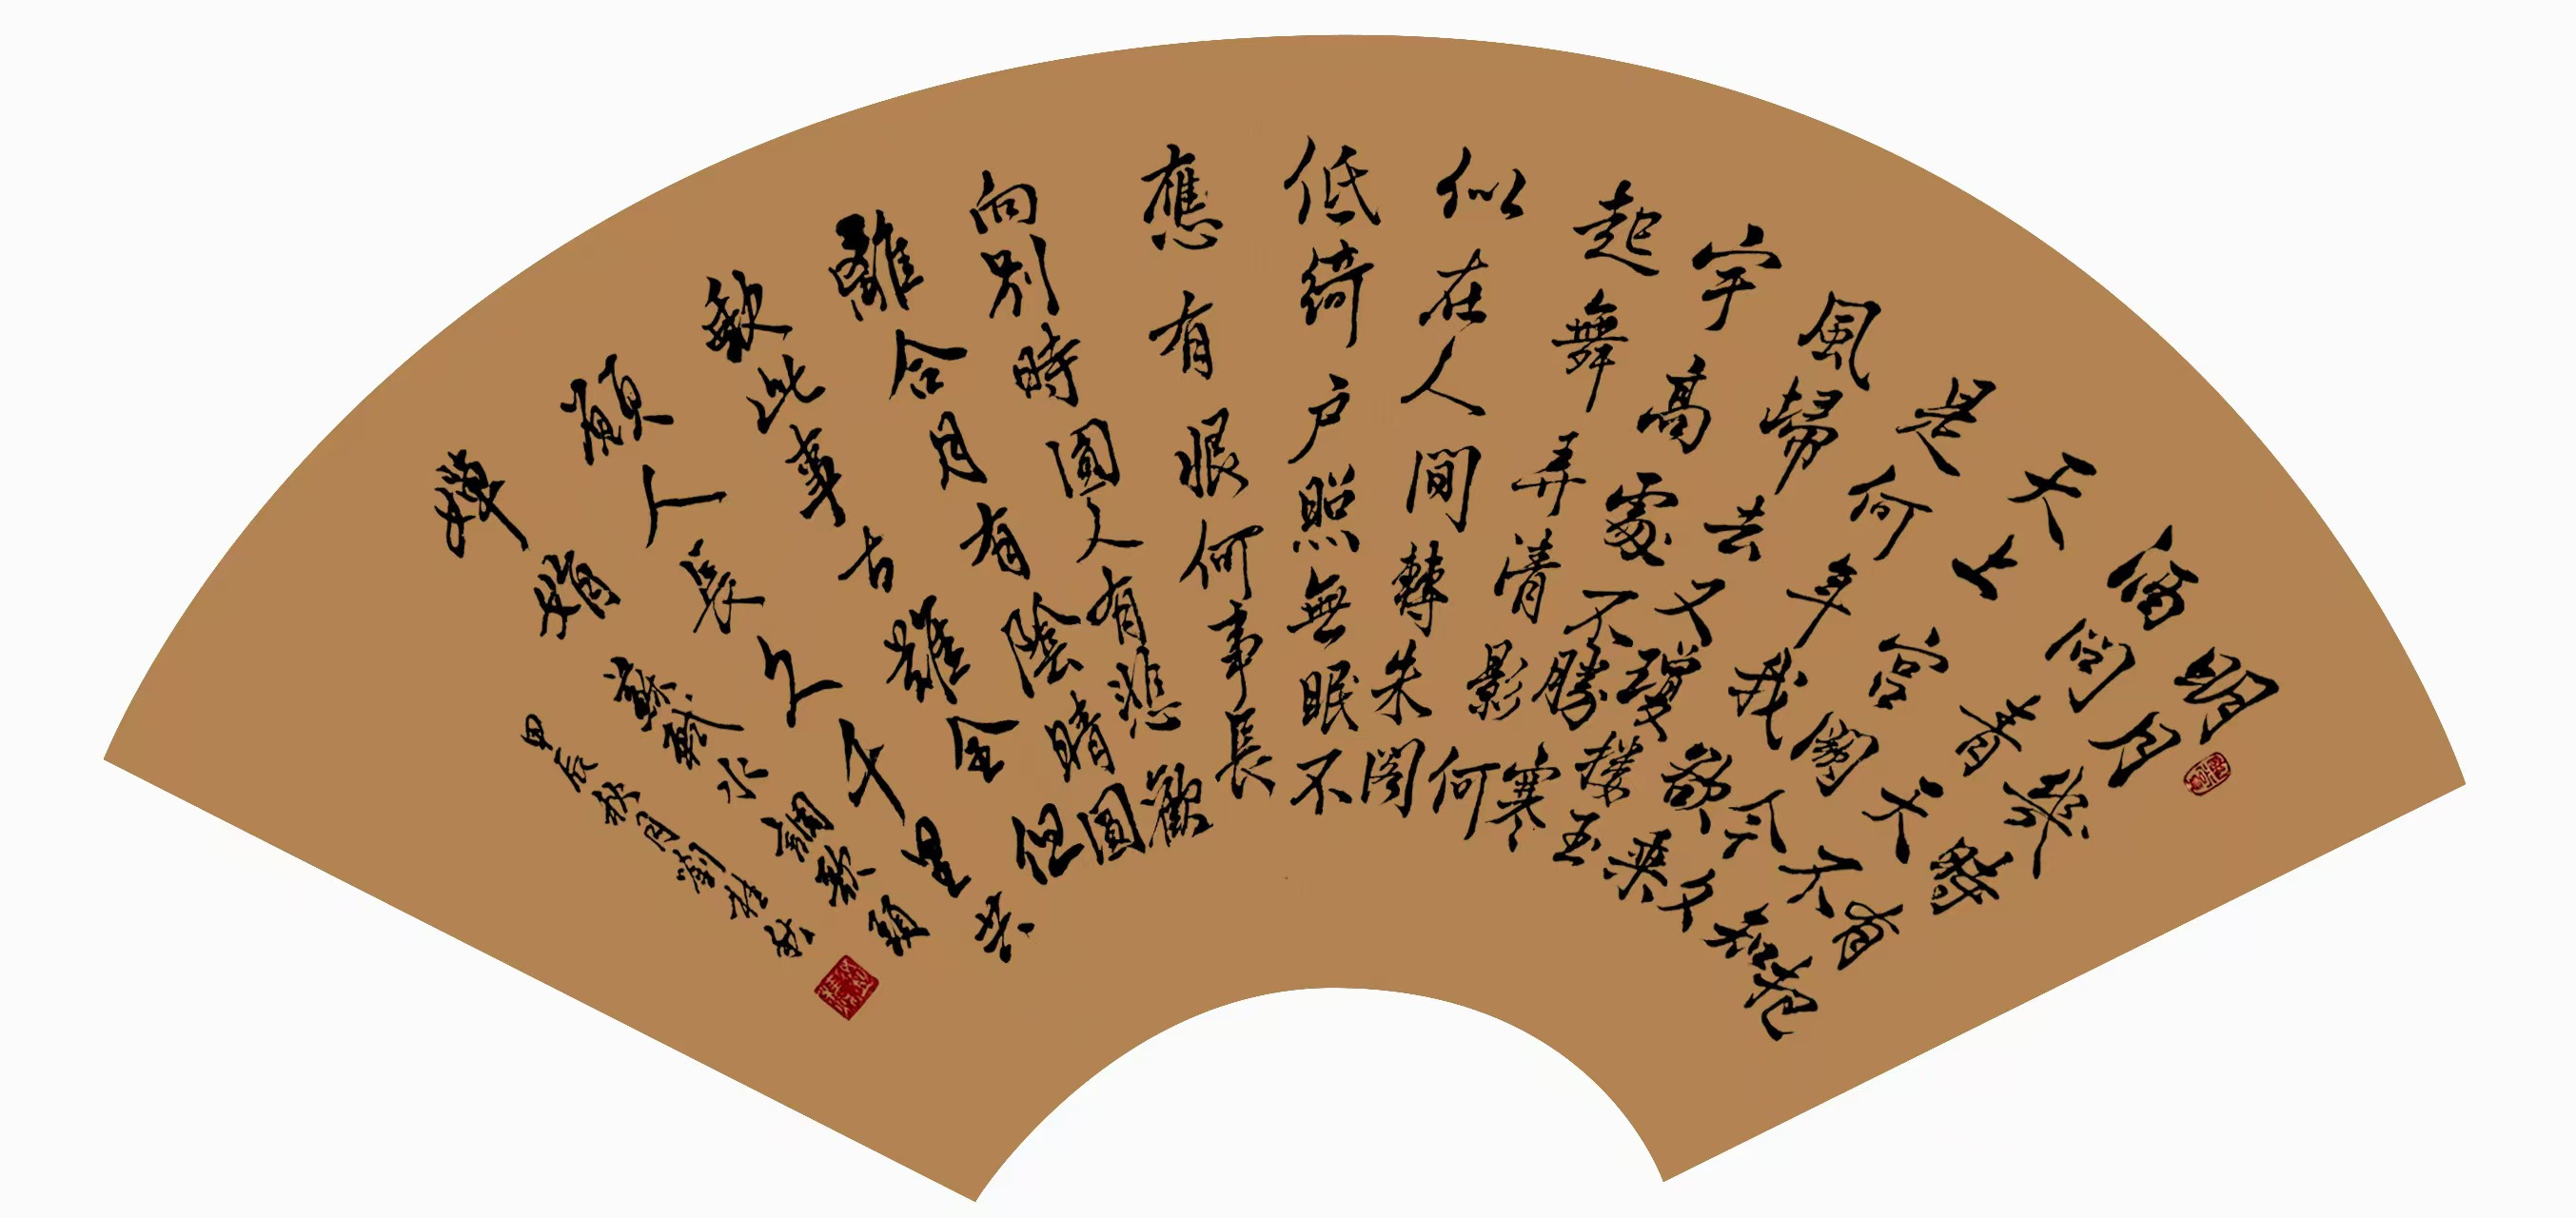 明月幾時有把
酒問青天不知
天上宮闕今夕
是何年我欲乘
風歸去又瓊樓玉
宇高處不勝寒
起舞弄清影何
似在人間轉朱閣
低綺戶照無眠不
應有恨何事長
向別時圓人有悲歡
離合月有陰晴圓
缺此事古難全但
願人長久千里共
嬋娟 蘇軾水調歌頭
甲辰秋月劉書